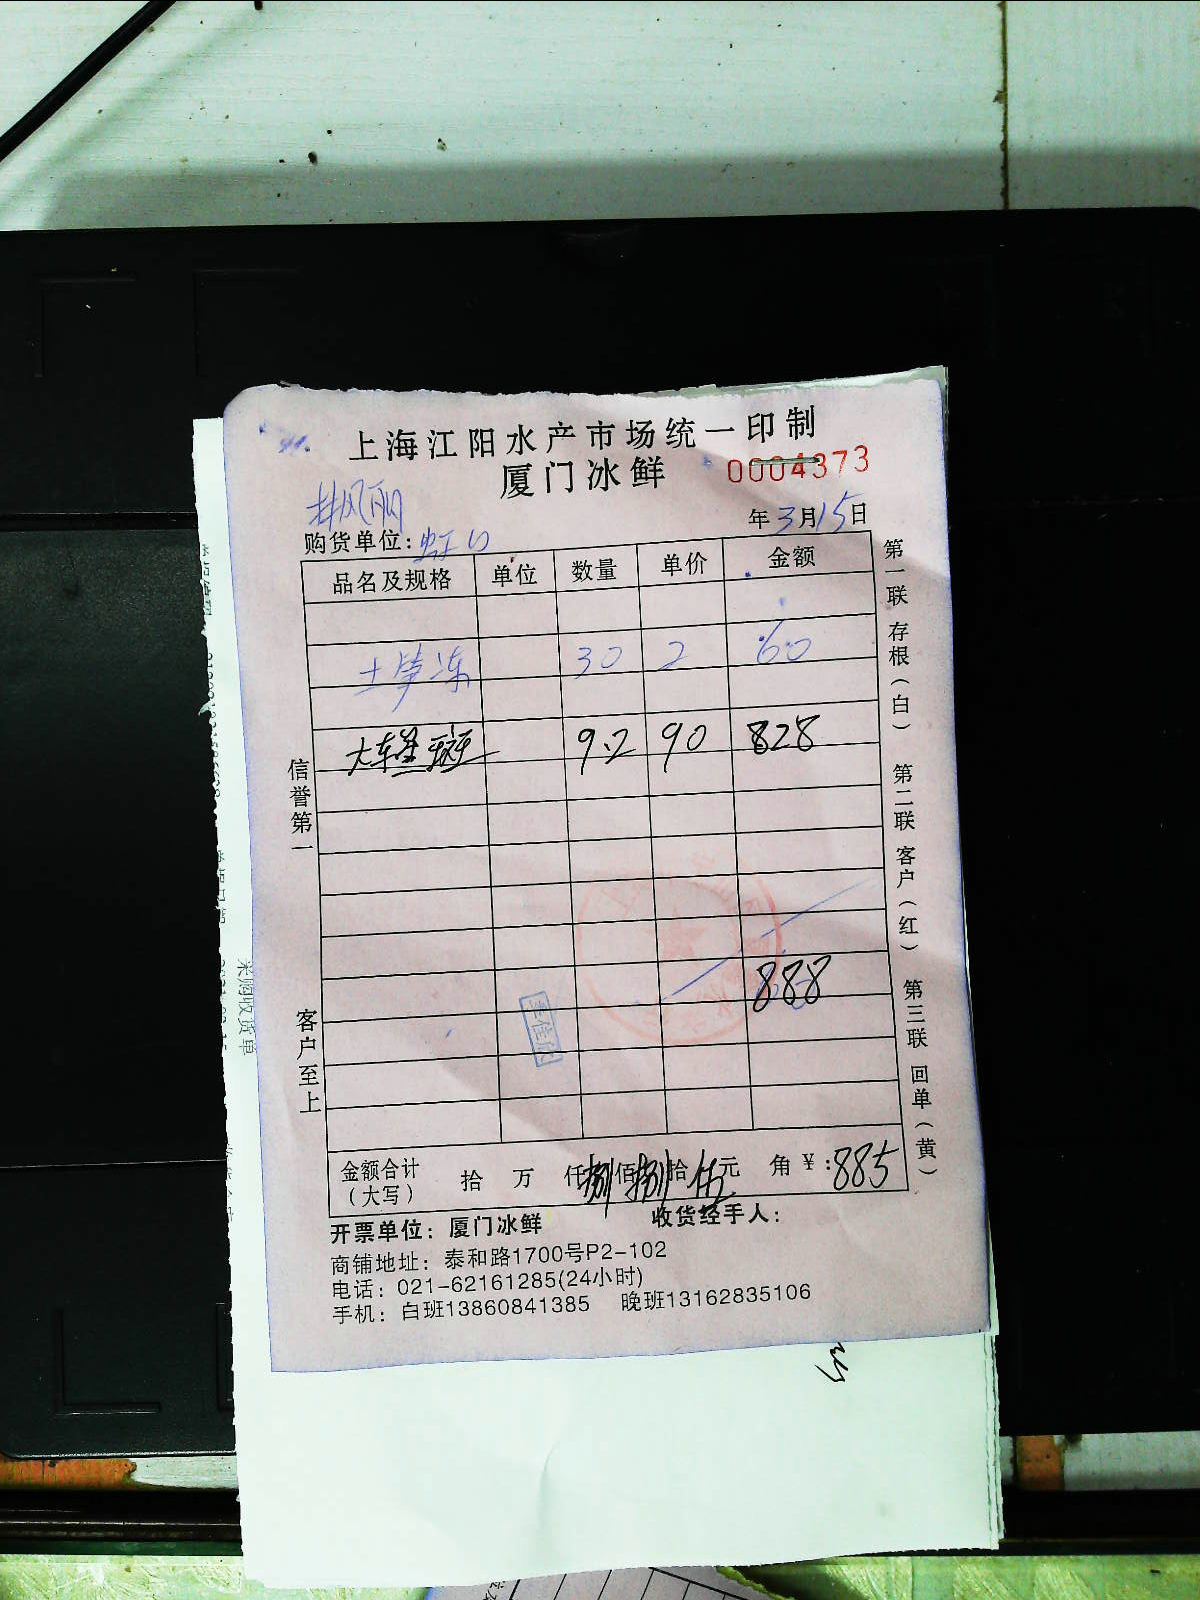 上海江阳水产市场统一印制
厦门冰鲜 0004373
年3月15日
购货单位:虹口
品名及规格 单位 数量 单价 金额
土笋冻 30 2 60
大东星斑 9.2 90 828
888
金额合计（大写） 拾 万 仟捌佰捌拾伍元 角 ¥:885
开票单位: 厦门冰鲜 收货经手人:
商铺地址: 泰和路1700号P2-102
电话: 021-62161285(24小时)
手机: 白班13860841385 晚班13162835106
信誉第一
客户至上
第一联 存根（白） 第二联 客户（红） 第三联 回单（黄）
采购收货单